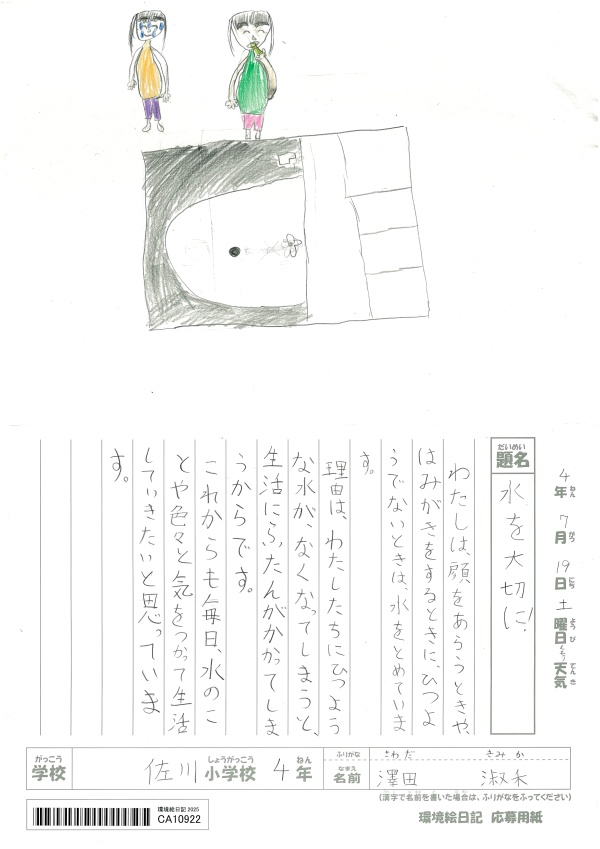 4年ねん 7月がつ 19日にち 土曜日ようび 天気てんき
題名だいめい
水を大切に!
わたしは、顔をあらうときや、
はみがきをするときに、ひつよ
うでないときは、水をとめていま
す。
理由は、わたしたちにひつよう
な水が、なくなってしまうと、
生活にふたんがかかってしま
うからです。
これからも毎日、水のこ
とや色々と気をつかって生活
していきたいと思っていま
す。
がっこう しょうがっこう ねん ふりがな さわだ きみか
学校 佐川 小学校 4年 なまえ 名前 澤田 淑禾
(漢字で名前を書いた場合は、ふりがなをふってください)
環境絵日記 2025
CA10922
環境絵日記 応募用紙